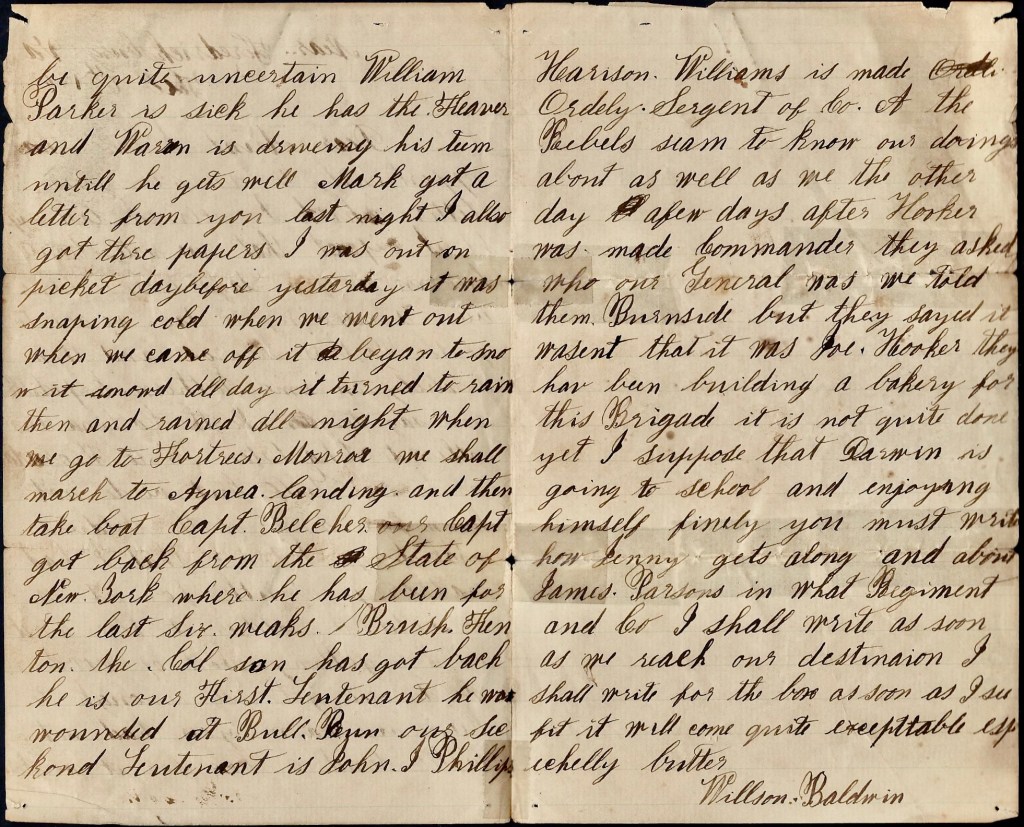 be quite uncertain William
Parker is sick he has the Feaver
and Waren is driweing his teem
untill he gets well Mark got a
letter from you last night I also
got thre papers I was out on
picket daybefore yesterday it was
snaping cold when we went out
when we came off it began to sno
w it snowd all day it turned to rain
then and rained all night when
we go to Fortrees. Monroe we shall
march to Aquea. landing. and then
take boat Capt. Belcher our Capt
got back from the State of
New. York where he has been for
the last Six. weaks. Brush. Fen
ton. the. Col son has got back
he is our First. Leutenant he was
wounded at Bull. Run our sec
kond Leutenant is John. I Phillips
Harison. Williams is made
Ordely. Sergent of Co. A the
Rebels seam to know our doings
about as well as we the other
day afew days after Hooker
was made Commander they asked
who our General was we told
them. Burnside but they sayed it
wasent that it was Joe. Hooker they
hav been building a bakery for
this Brigade it is not quite done
yet I suppose that Darwin is
going to school and enjoying
himself finely you must write
how Lenny gets along and about
James. Parsons in what Regiment
and Co I shall write as soon
as we reach our destinaion I
shall write for the box as soon as I see
fit it will come quite excepttable esp
echelly butter
Willson. Baldwin